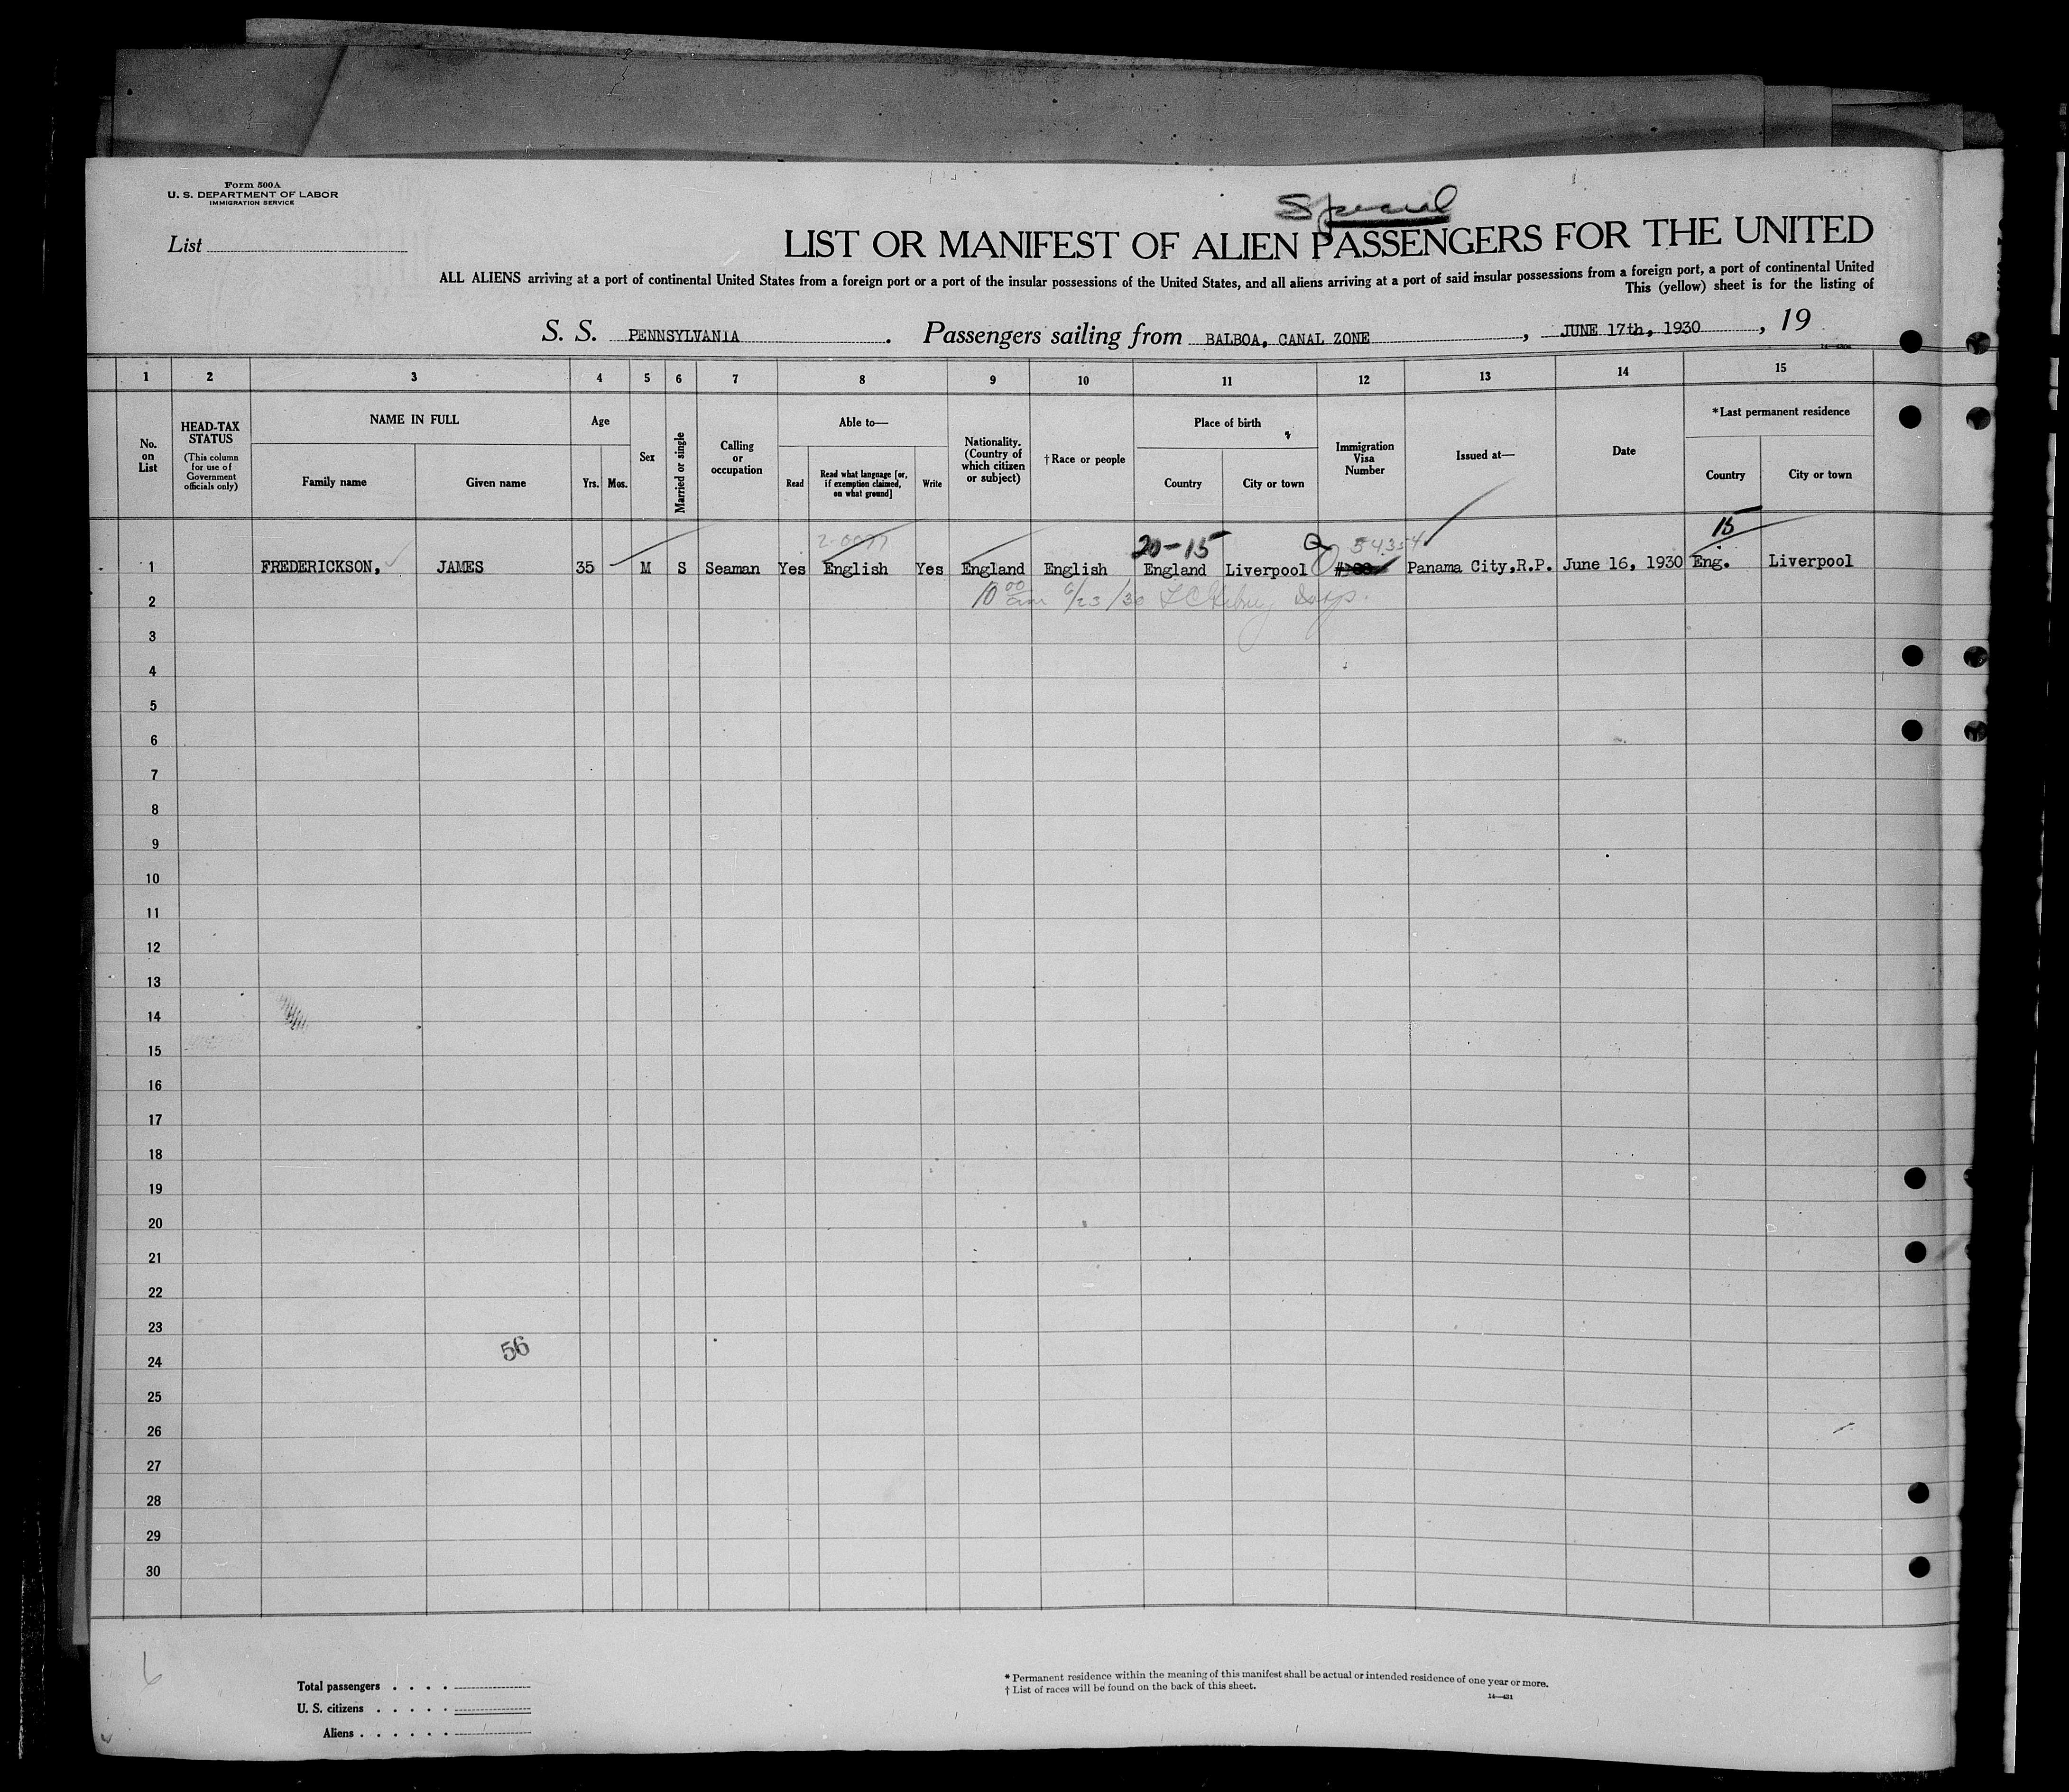 Form 500A
U. S. DEPARTMENT OF LABOR
IMMIGRATION SERVICE
Special
List
LIST OR MANIFEST OF ALIEN PASSENGERS FOR THE UNITED
ALL ALIENS arriving at a port of continental United States from a foreign port or a port of the insular possessions of the United States, and all aliens arriving at a port of said insular possessions from a foreign port, a port of continental United
This (yellow) sheet is for the listing of
S. S. PENNSYLVANIA . Passengers sailing from BALBOA, CANAL ZONE , JUNE 17th, 1930 , 19
1 2 3 4 5 6 7 8 9 10 11 12 13 14 15
No. on List
HEAD-TAX STATUS
(This column for use of Government officials only)
NAME IN FULL
Family name
Given name
Age
Yrs. Mos.
Sex
Married or single
Calling or occupation
Able to—
Read
Read what language [or, if exemption claimed, on what ground]
Write
Nationality. (Country of which citizen or subject)
†Race or people
Place of birth
Country
City or town
Immigration Visa Number
Issued at—
Date
*Last permanent residence
Country
City or town
20-15 54354 15
1 FREDERICKSON, JAMES 35 M S Seaman Yes English Yes England English England Liverpool Panama City,R.P. June 16, 1930 Eng. Liverpool
10 00 am 6/23/30
2
3
4
5
6
7
8
9
10
11
12
13
14
15
16
17
18
19
20
21
22
23
24
25
26
27
28
29
30
56
6
Total passengers . . . .
U. S. citizens . . . . .
Aliens . . . . . .
* Permanent residence within the meaning of this manifest shall be actual or intended residence of one year or more.
† List of races will be found on the back of this sheet.
14—421